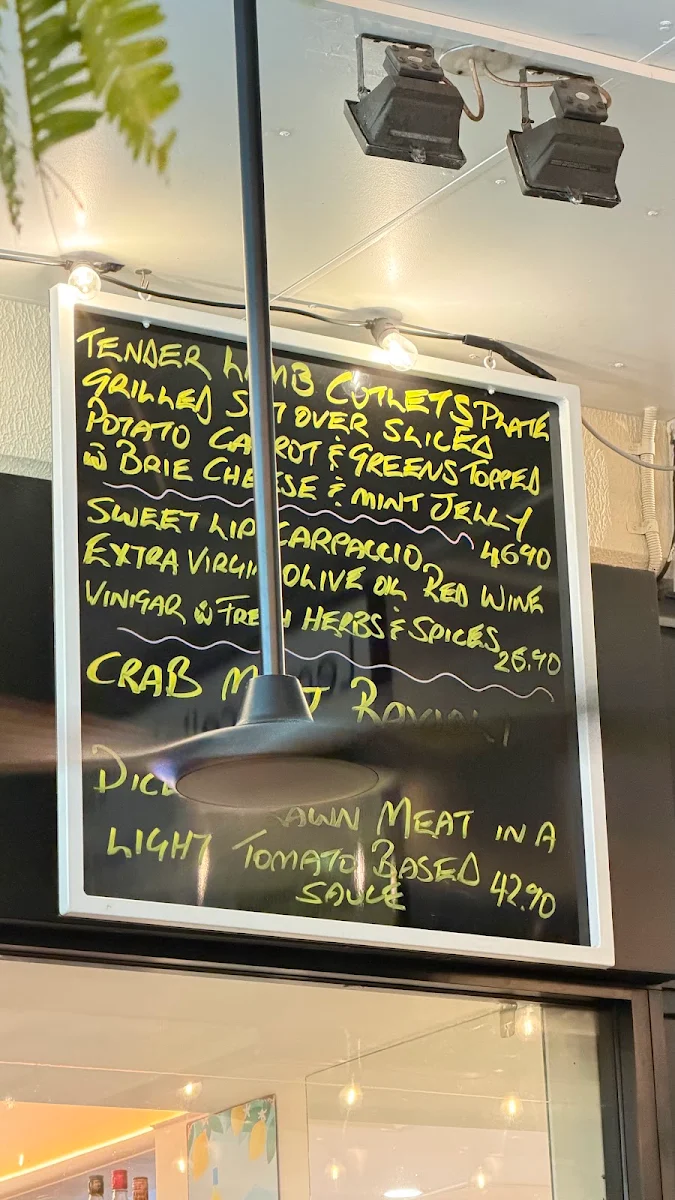 TENDER LAMB CUTLETS PLATE
GRILLED SAT OVER SLICED
POTATO CARROT & GREENS TOPPED
W BRIE CHEESE & MINT JELLY
4690
SWEET LIP CARPACCIO
EXTRA VIRGIN OLIVE OIL RED WINE
VINIGAR W FRESH HERBS & SPICES
26.90
CRAB MEAT RAVIOLI
MEAT IN A
LIGHT TOMATO BASED
SAUCE 42.90